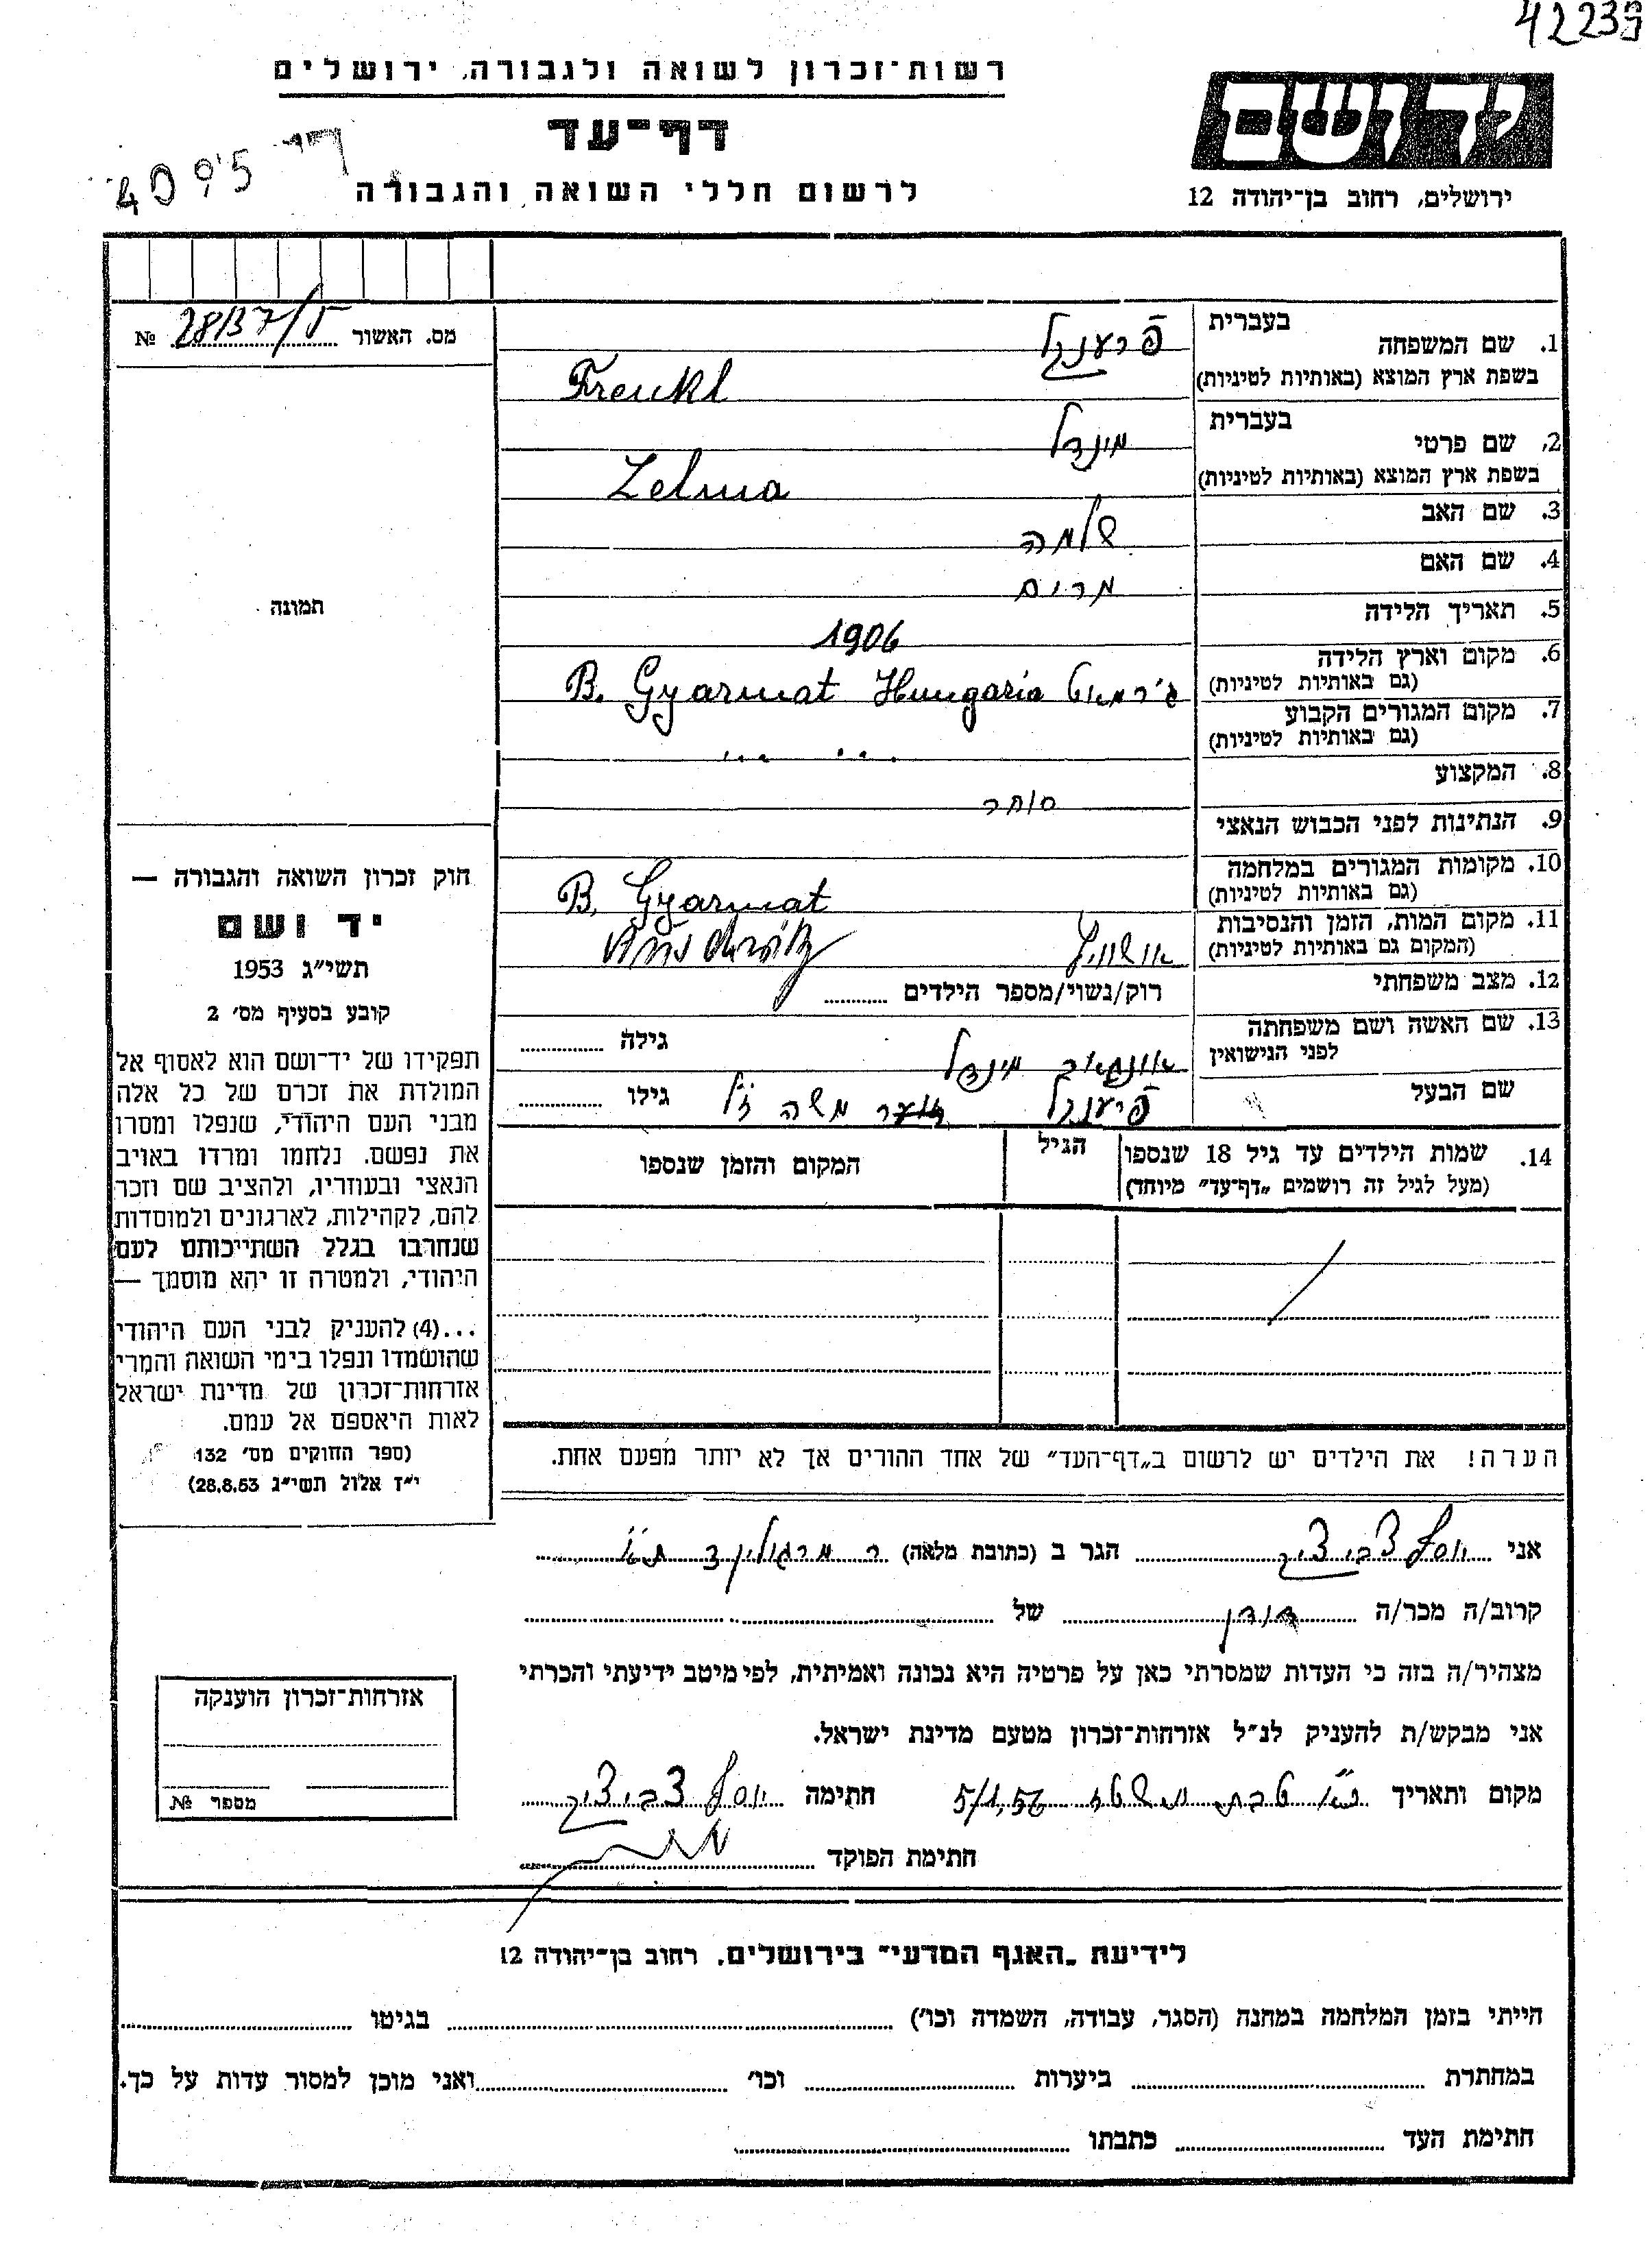 42233
רשות־זכרון לשואה ולגבורה, ירושלים
יד ושם
דף־עד
4095
לרשום חללי השואה והגבורה
ירושלים, רחוב בן־יהודה 12
מס. האשור 28137/5 №
1. שם המשפחה בעברית פרענקל
בשפת ארץ המוצא (באותיות לטיניות) Frenkl
2. שם פרטי בעברית מינדל
בשפת ארץ המוצא (באותיות לטיניות) Zelma
3. שם האב שלמה
4. שם האם מרים
5. תאריך הלידה 1906
6. מקום וארץ הלידה (גם באותיות לטיניות) B. Gyarmat Hungaria גירמאט
7. מקום המגורים הקבוע (גם באותיות לטיניות) ,, ,, ,,
8. המקצוע סוחר
9. הנתינות לפני הכבוש הנאצי
10. מקומות המגורים במלחמה (גם באותיות לטיניות) B. Gyarmat
11. מקום המות, הזמן והנסיבות (המקום גם באותיות לטיניות) אושוויץ
12. מצב משפחתי רוק/נשוי/מספר הילדים
13. שם האשה ושם משפחתה לפני הנישואין מינדל גילה
שם הבעל פרענקל משה ז"ל גילו
14. שמות הילדים עד גיל 18 שנספו (מעל לגיל זה רושמים „דף־עד” מיוחד) הגיל המקום והזמן שנספו
תמונה
חוק זכרון השואה והגבורה —
יד ושם
תשי״ג 1953
קובע בסעיף מס׳ 2
תפקידו של יד־ושם הוא לאסוף אל
המולדת את זכרם של כל אלה
מבני העם היהודי, שנפלו ומסרו
את נפשם. נלחמו ומרדו באויב
הנאצי ובעוזריו, ולהציב שם וזכר
להם, לקהילות, לארגונים ולמוסדות
שנחרבו בגלל השתייכותם לעם
היהודי, ולמטרה זו יהא מוסמך —
...(4) להעניק לבני העם היהודי
שהושמדו ונפלו בימי השואה והמרי
אזרחות־זכרון של מדינת ישראל
לאות היאספם אל עמם.
(ספר החוקים מס׳ 132
י״ז אלול תשי״ג 28.8.53)
הערה! את הילדים יש לרשום ב„דף־העד” של אחד ההורים אך לא יותר מפעם אחת.
אני יוסף הגר ב (כתובת מלאה) ר מרגולין ת"א
קרוב/ה מכר/ה דודן של
מצהיר/ה בזה כי העדות שמסרתי כאן על פרטיה היא נכונה ואמיתית, לפי מיטב ידיעתי והכרתי
אני מבקש/ת להעניק לנ״ל אזרחות־זכרון מטעם מדינת ישראל.
מקום ותאריך טבת 5/1.56 חתימה יוסף
חתימת הפוקד
אזרחות־זכרון הוענקה
מספר №
לידיעת „האגף המדעי” בירושלים, רחוב בן־יהודה 12
הייתי בזמן המלחמה במחנה (הסגר, עבודה, השמדה וכו׳) בגיטו
במחתרת ביערות וכו׳ ואני מוכן למסור עדות על כך.
חתימת העד כתבתו